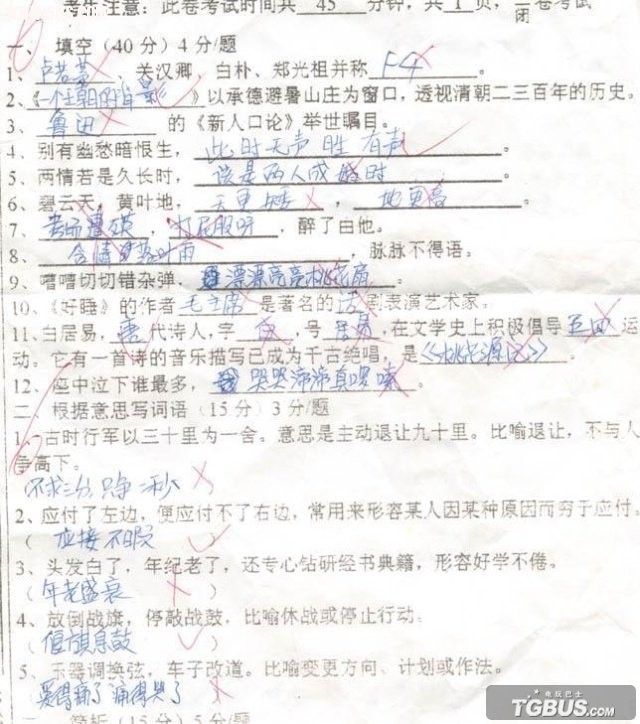 考生注意：此卷考试时间共 45 分钟，共 1 页，闭卷考试
一、填空（40分）4分/题
1、卢若蒙，关汉卿、白朴、郑光祖并称 F4。
2、《一个王朝的背影》以承德避暑山庄为窗口，透视清朝二三百年的历史。
3、鲁迅 的《新人口论》举世瞩目。
4、别有幽愁暗恨生，此时无声胜有声。
5、两情若是久长时，该是两人成婚时。
6、碧云天，黄叶地，天更矮，地更高。
7、考场遭殃，打屁股呀，醉了白他。
8、含情 叶雨 脉脉不得语。
9、嘈嘈切切错杂弹，漂漂亮亮桃花扇。
10、《好睡》的作者毛主席是著名的法剧表演艺术家。
11、白居易，唐代诗人，字 ，号 ，在文学史上积极倡导五四运
动。它有一首诗的音乐描写已成为千古绝唱，是《桃花源记》。
12、座中泣下谁最多，哭哭啼啼真哭嗦。
二、根据意思写词语（15分）3分/题
1、古时行军以三十里为一舍。意思是主动退让九十里。比喻退让，不与人
争高下。
（不求三分只争二秒
2、应付了左边，便应付不了右边，常用来形容某人因某种原因而穷于应付。
（应接不暇 ）
3、头发白了，年纪老了，还专心钻研经书典籍，形容好学不倦。
（年老盛衰 ）
4、放倒战旗，停敲战鼓，比喻休战或停止行动。
（偃旗息鼓 ）
5、乐器调换弦，车子改道。比喻变更方向、计划或作法。
爱得痛了痛得哭了 ）
简析（15分）5分/题
电玩巴士
TGBUS.com